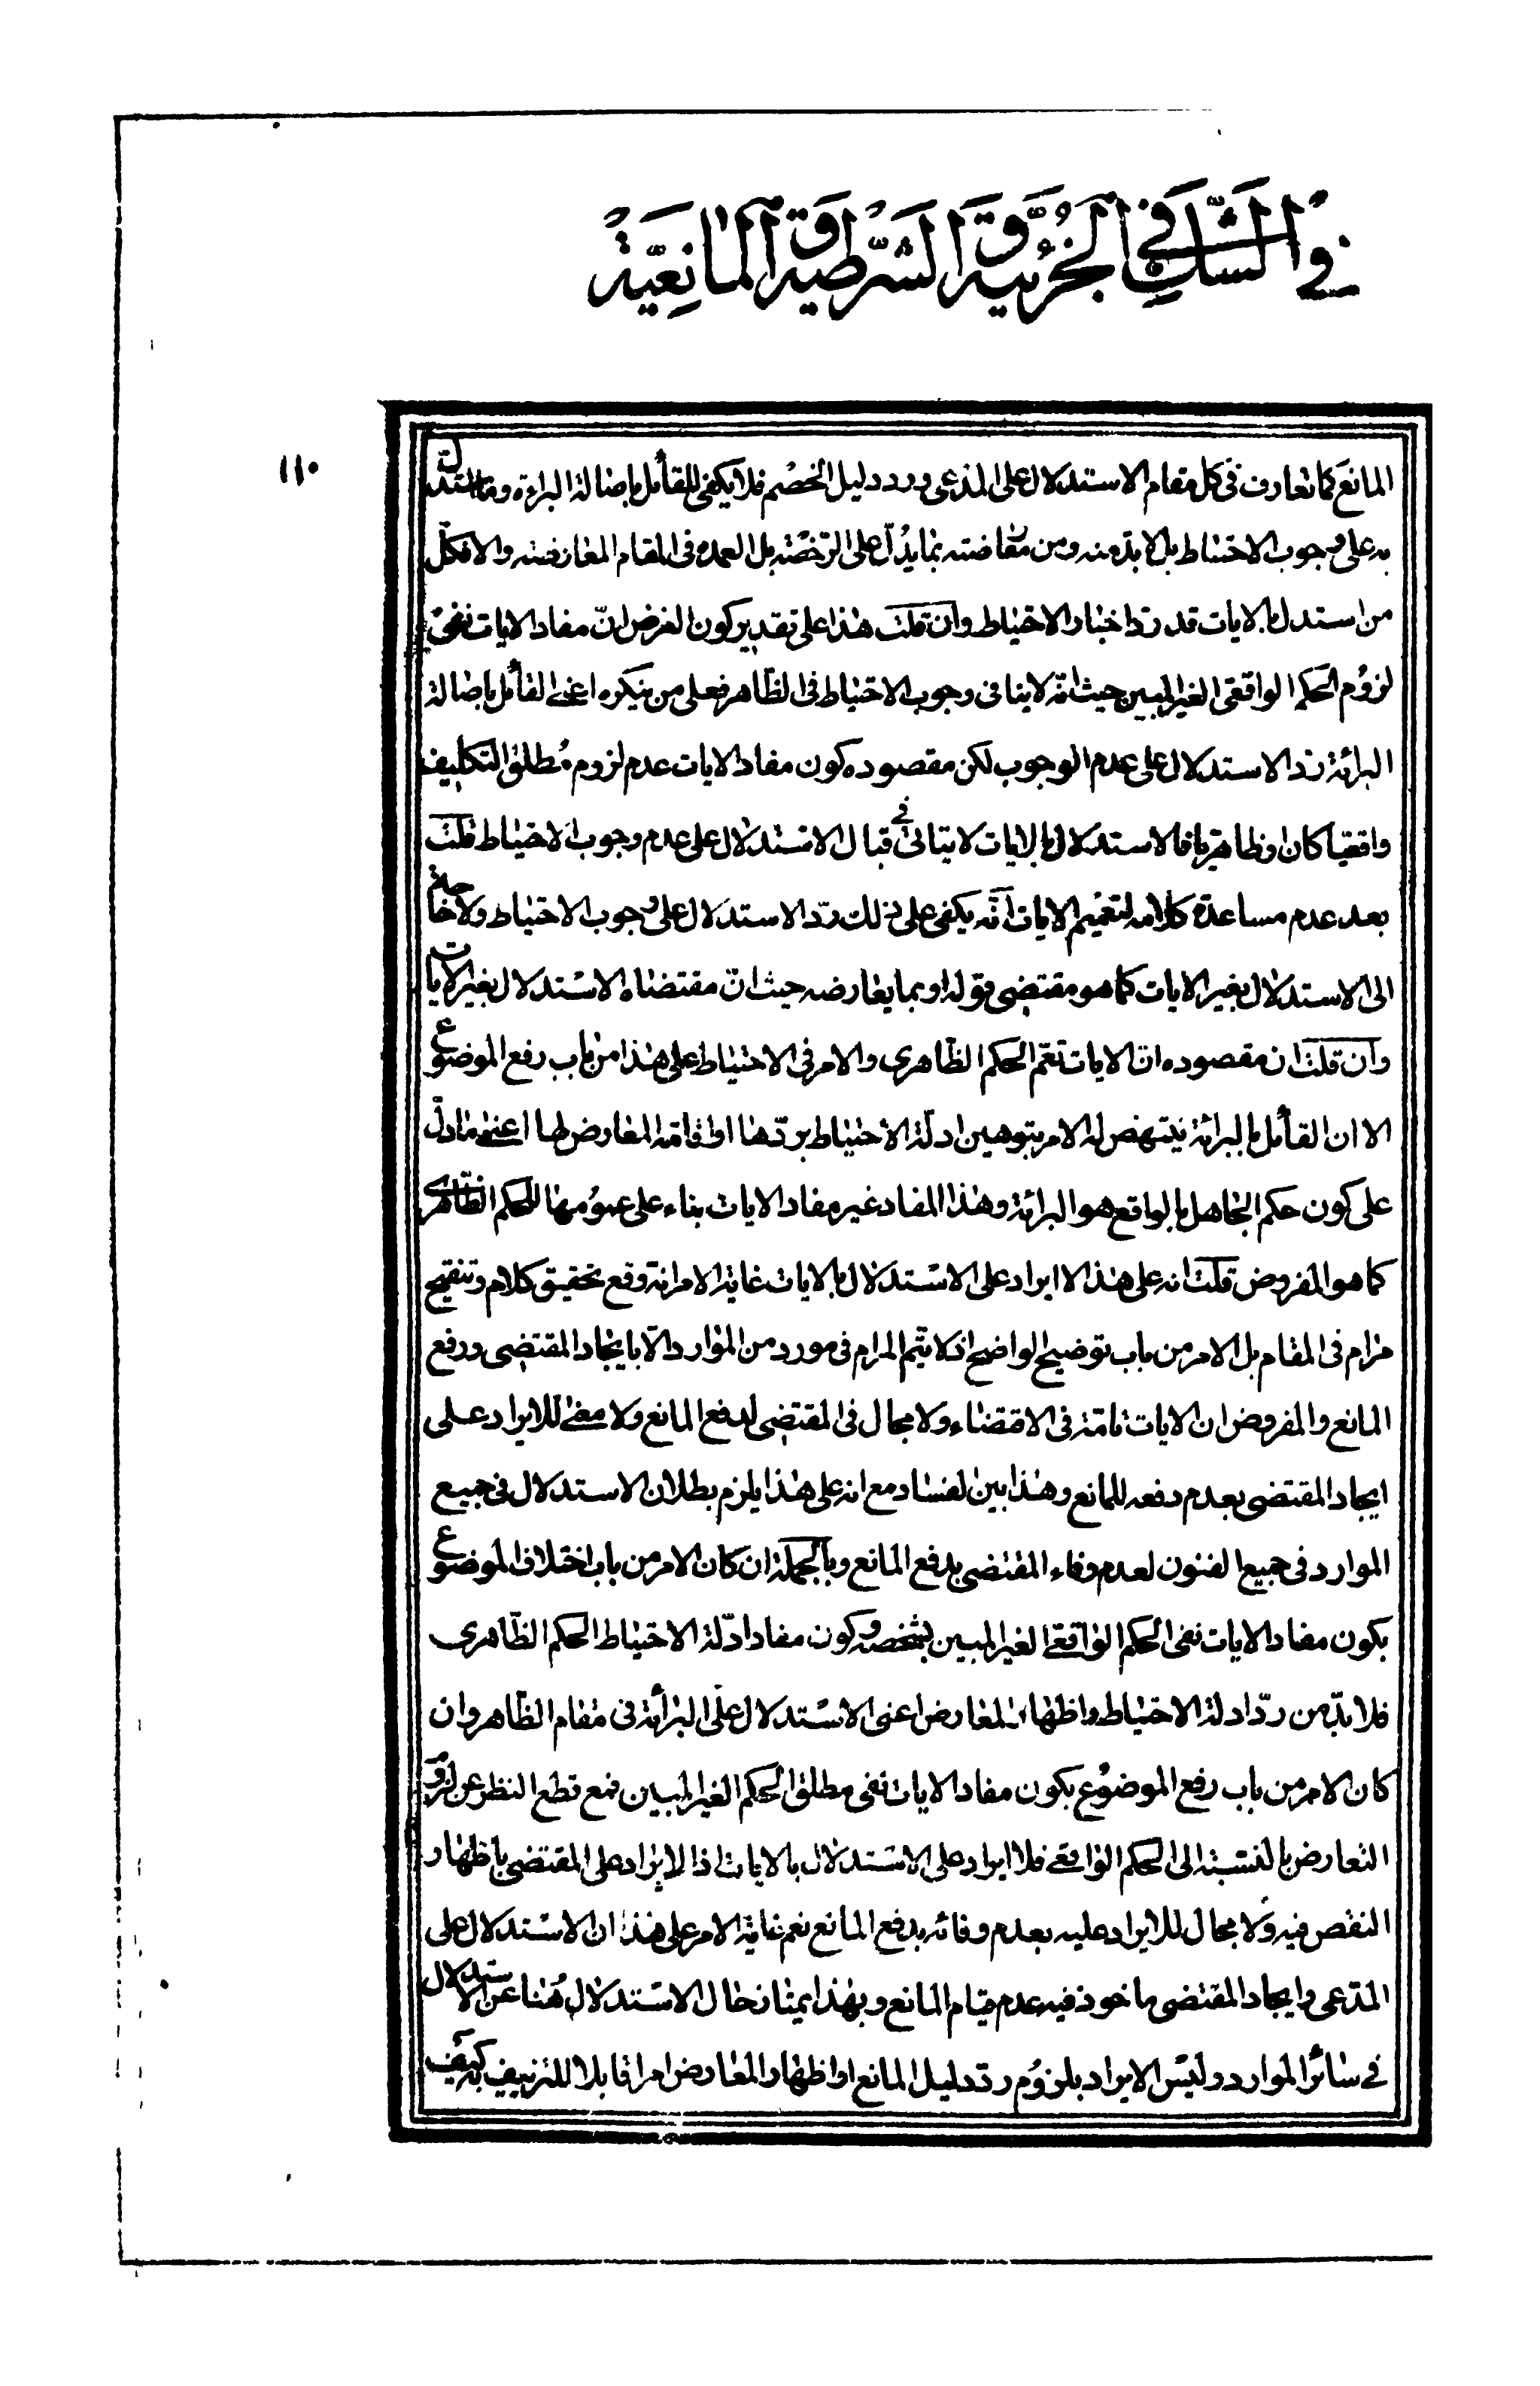 في الشك في الجزئية و الشرطية و المانعية
١١٠
المانع كما تعارف فى كل مقام الاستدلال على المدعى ورد دليل الخصم فلا يكفى للقائل باصالة البراءة رد ما استدل
به على وجوب الاحتياط بل لا بد منه ومن معارضته بما يدل على الرخصة بل العمدة فى المقام المعارضته والا فكل
من استدل بالايات قد رد اخبار الاحتياط وان قلت هذا على تقدير كون الغرض ان مفاد الايات نفى
لزوم الحكم الواقعى الغير المبين حيث انه لا ينافى وجوب الاحتياط فى الظاهر فعلى من ينكره اعنى القائل باصالة
البرائة رد الاستدلال على عدم الوجوب لكن مقصوده كون مفاد الايات عدم لزوم مطلق التكليف
واقعيا كان او ظاهريا فالاستدلال بالايات لا يتاتى فى قبال الاستدلال على عدم وجوب الاحتياط قلت
بعد عدم مساعدة كلامه لتعميم الايات انه يكفى على ذلك رد الاستدلال على وجوب الاحتياط ولا حاجة
الى الاستدلال بغير الايات كما هو مقتضى قوله او بما يعارضه حيث ان مقتضاه الاستدلال بغير الايات
وان قلت ان مقصوده ان الايات تعم الحكم الظاهرى والامر فى الاحتياط على هذا من باب رفع الموضوع
الا ان القائل بالبرائة ينتهض له الامر بتوهين ادلة الاحتياط بردها او اقامة المعارض لها اعنى ما دل
على كون حكم الجاهل بالواقع هو البرائة وهذا المفاد غير مفاد الايات بناء على عمومها للحكم الظاهرى
كما هو المفروض قلت انه على هذا لا ايراد على الاستدلال بالايات غاية الامر انه وقع تحقيق كلام وتنقيح
مرام فى المقام بل الامر من باب توضيح الواضح اذ لا يتم المرام فى مورد من الموارد الا بايجاد المقتضى ورفع
المانع والمفروض ان الايات تامة فى الاقتضاء ولا مجال فى المقتضى لدفع المانع ولا معنى للايراد على
ايجاد المقتضى بعدم دفعه للمانع وهذا بين الفساد مع انه على هذا يلزم بطلان الاستدلال فى جميع
الموارد فى جميع الفنون لعدم وفاء المقتضى بدفع المانع وبالجملة ان كان الامر من باب اختلاف الموضوع
بكون مفاد الايات نفى الحكم الواقعى الغير المبين بشخصه وكون مفاد ادلة الاحتياط الحكم الظاهرى
فلا بد من رد ادلة الاحتياط واظهار المعارض اعنى الاستدلال على البرائة فى مقام الظاهر وان
كان الامر من باب رفع الموضوع بكون مفاد الايات نفى مطلق الحكم الغير المبين فمع قطع النظر عن لزوم
التعارض بالنسبة الى الحكم الواقعى فلا ايراد على الاستدلال بالايات اذ الايراد على المقتضى باظهار
النقص فيه ولا مجال للايراد عليه بعدم وفائه بدفع المانع نعم غاية الامر على هذا ان الاستدلال على
المدعى وايجاد المقتضى ماخوذ فيه عدم قيام المانع وبهذا يمتاز حال الاستدلال هنا عن الاستدلال
فى سائر الموارد وليس الايراد بلزوم رد دليل المانع او اظهار المعارض امرا قابلا للتزييف كيف